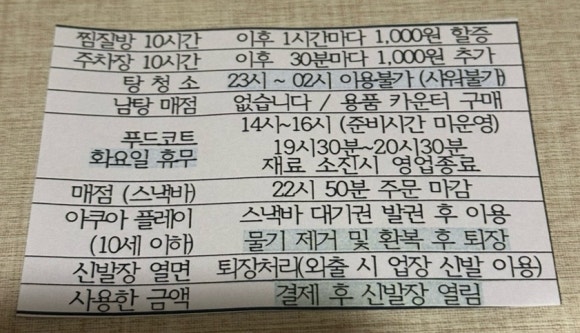 찜질방 10시간 이후 1시간마다 1,000원 할증
주차장 10시간 이후 30분마다 1,000원 추가
탕 청 소 23시 ~ 02시 이용불가 (샤워불가)
남탕 매점 없습니다 / 용품 카운터 구매
푸드코트
화요일 휴무
14시~16시 (준비시간 미운영)
19시30분~20시30분
재료 소진시 영업종료
매점 (스낵바) 22시 50분 주문 마감
아쿠아 플레이
(10세 이하)
스낵바 대기권 발권 후 이용
물기 제거 및 환복 후 퇴장
신발장 열면 퇴장처리(외출 시 업장 신발 이용)
사용한 금액 결제 후 신발장 열림